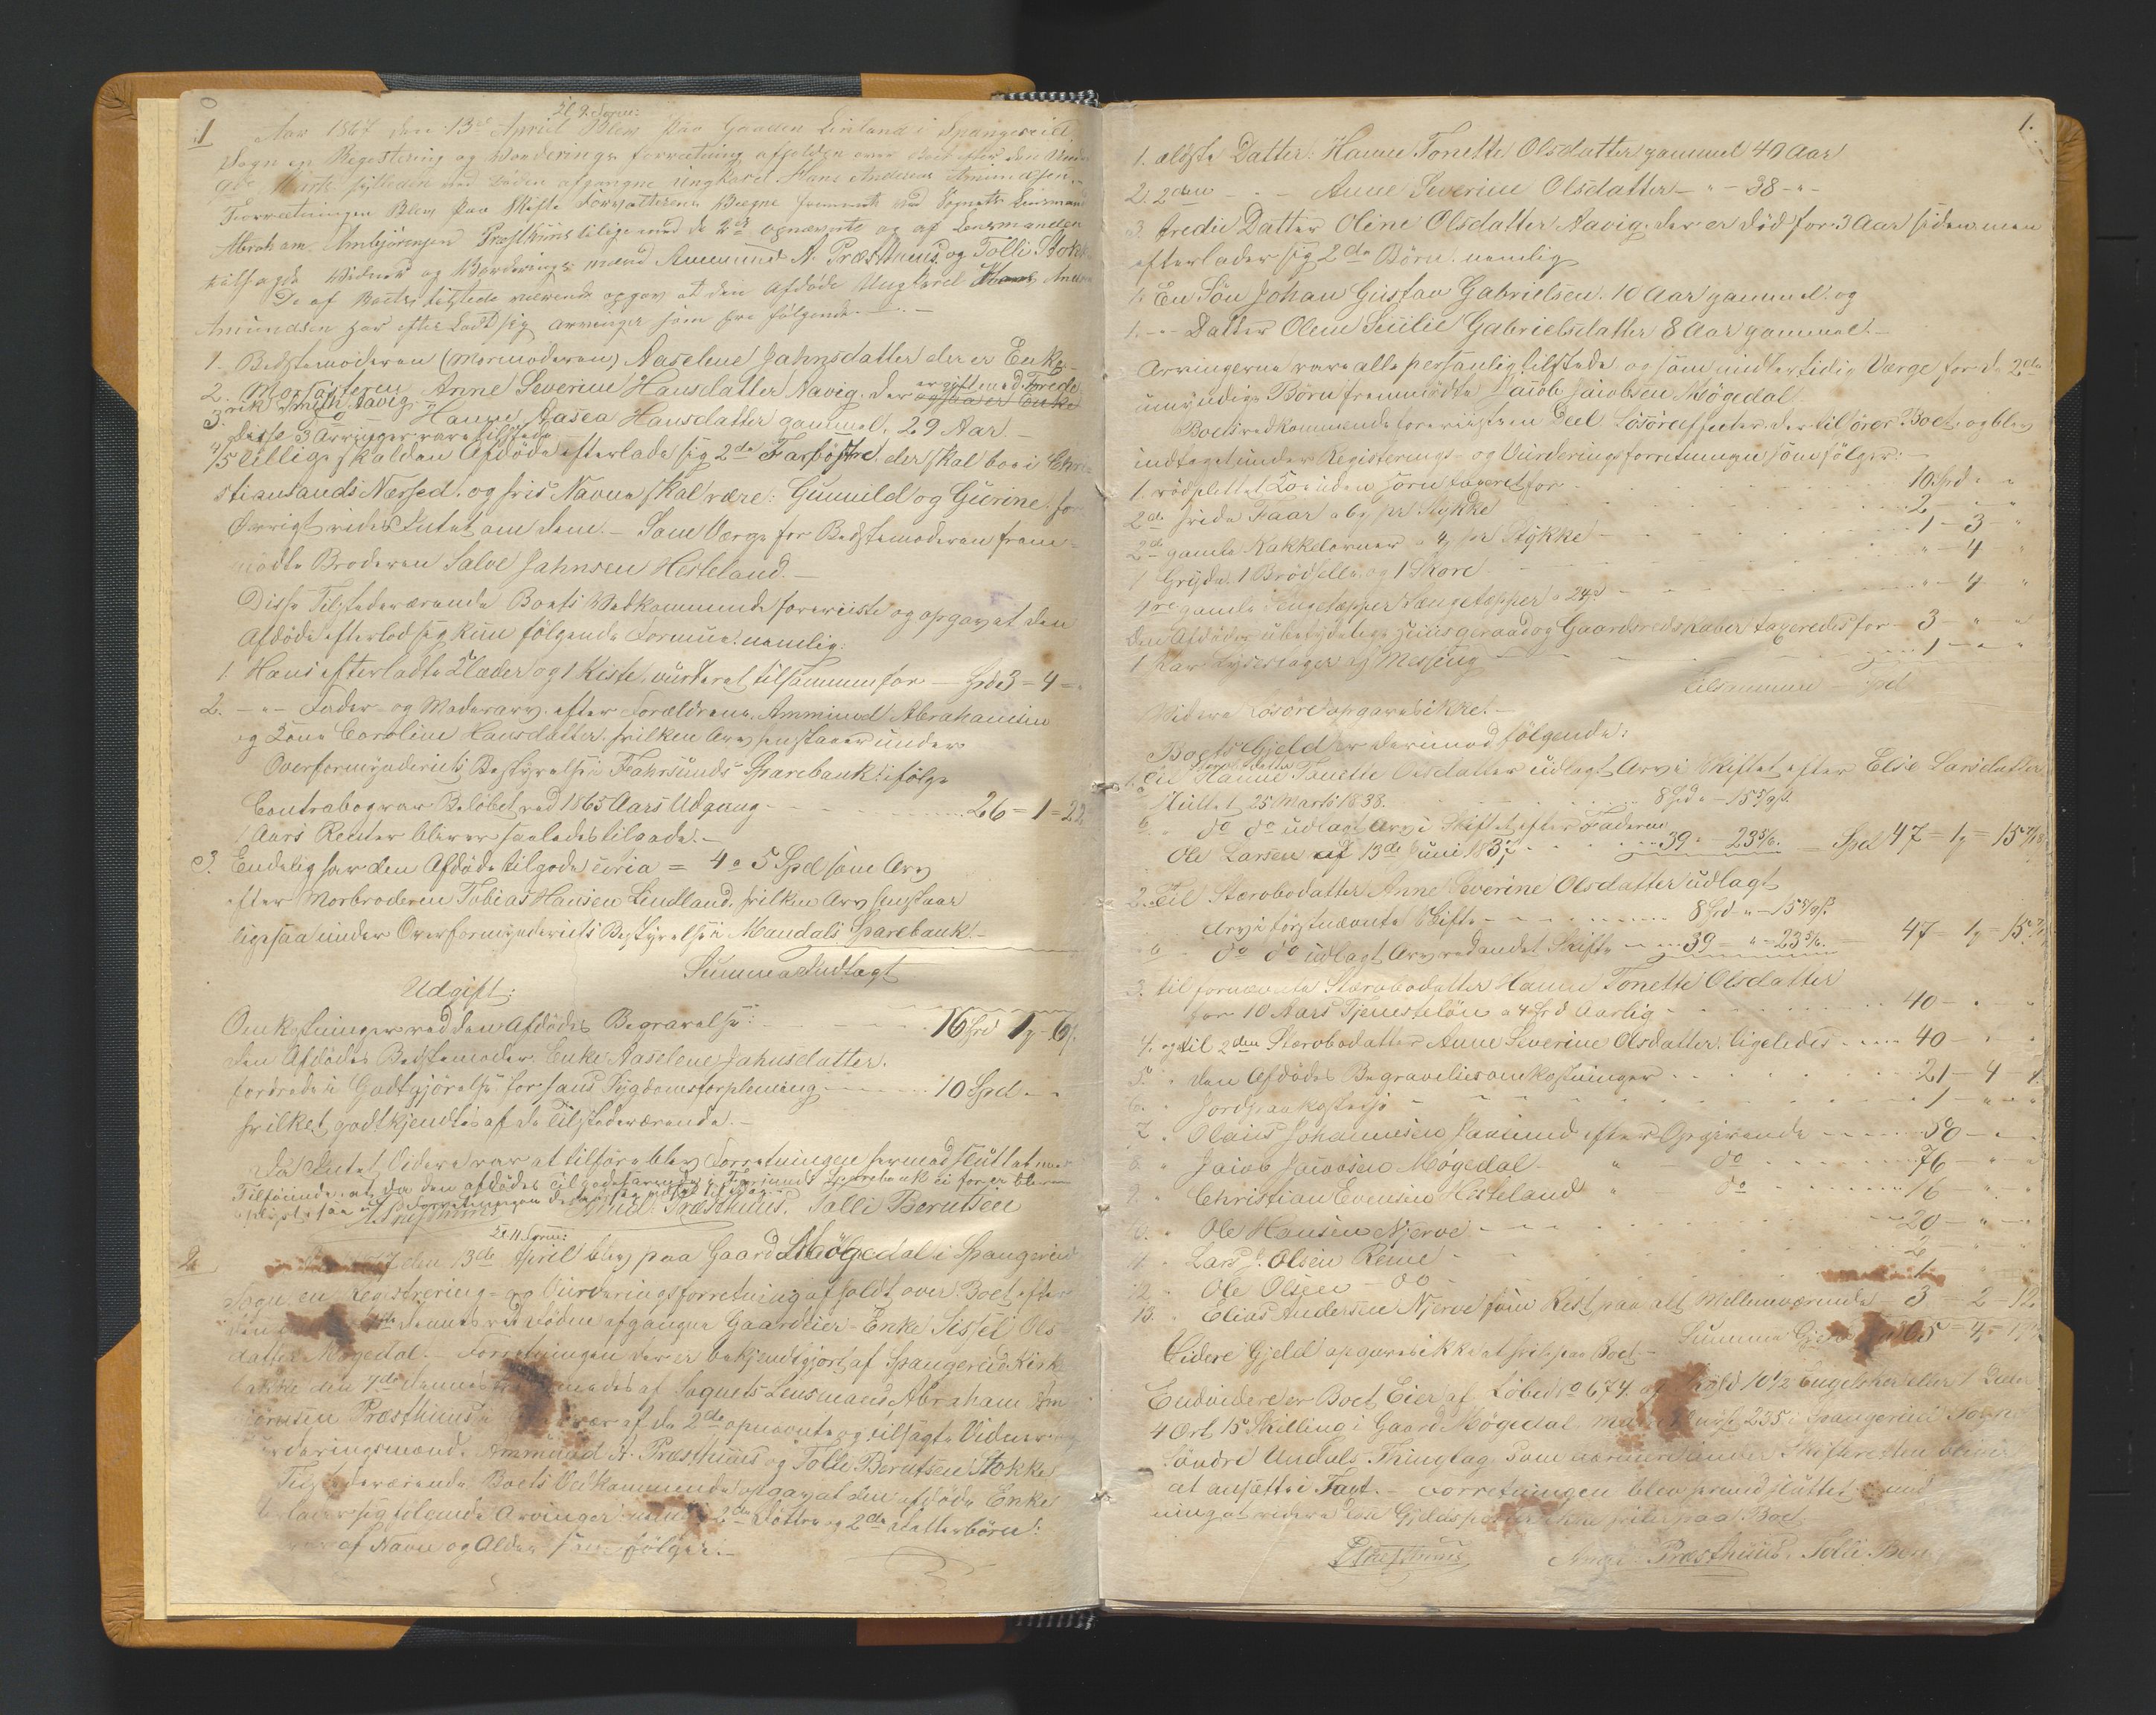 1
Kl. 9 Form:
Aar 1867 den 13de April Blev paa Gaarden Lintland i Spangereid
Sogn en Registering og Vurderings forretning afholden over Boet efter den
Marts sidstleden ved Døden afgangne Ungkarl Hans Andreas Amundsen.
Forretningen Blev paa Skifte Forvalterens Vegne fremmet ved Sognets Lensmand
Abraham Ambjörnsen Præsthuus tilligemed de 2de opnævnte og af Lensmanden
tilsagde Vidner og Vurderings mænd Ammund A. Præsthuus og Tolli Stokke
De af Boets tilstede værende opgav at den Afdøde Ungkarl Hans Andr
Amundsen har efter Ladt sig arvinger som her følgende. —
1. Bedstemoderen (Mormoderen) Aaselene Jahnsdatter der er Enke
2. Morsösteren Anne Severine Hansdatter Aavig. der er gift med Frede
rik Smith Aavig
3. do Hanne Aasea Hansdatter gammel. 29 Aar. —
disse 3 Arvinger vare tilstede
4/5 tillige skal den Afdøde efterlade sig 2de Farsöstre. der skal boe i Chri-
stiansands Nærhed. og hvis Navne skal være: Gunnild og Gurine. for
Øvrigt vides Intet om dem. — Som Værge for Bedstemoderen frem=
mødte Broderen Salve Jahnsen Hesteland. —
Disse Tilstedeværende Boets Vedkommende foreviiste og opgav at den
Afdøde efterlod sig kun følgende Formue. nemlig:
1. Hans efterladte Klæder og 1 Kiste, vurderet tilsammen for — Spd 3 – 4 –
2. – " – Fader og Moderarv. efter Forældrene. Ammund Abrahamsen
og Kone Caroline Hansdatter. hvilken Arv henstaaer under
Overformynderiets Bestyrelse i Fahrsunds Sparebank. ifølge
Contrabog var Beløbet ved 1865 Aars Udgang — 26 = 1 = 22
1 Aars Renter bliver saaledes tilgode. —
3. Endelig har den Afdøde tilgode circa = 4 a 5 Spd som Arv
efter Morbroderen Tobias Hansen Lindland. hvilken Arv henstaar
ligesaa under Overformynderiets Bestyrelse i Mandals Sparebank. —
Summa Indtægt
Udgift:
Omkostninger ved den Afdødes Begravelse: — 16 Spd 1 – 6
den Afdødes Bedstemoder. Enke Aaselene Jahnsdatter.
fordrede i Godtgjörelse for hans Sygdomsforpleining — 10 Spd – –
hvilket godtkjendtes af de Tilstedeværende. —
Da Intet Videre var at tilføre blev Forretningen hermed sluttet
Tilföiende. at da den afdødes tilgodehavende i Farsunds Sparebank
Præsthuus. Tolli Berntsen
2
Kl. 11 Form:
den 13de April blev paa Gaard Møgedal i Spangereid
Sogn en Registrering- og Vurderingsforretning afholdt over Boet efter
den ved døden afgangne Gaardeier-Enke Sissel Ols
datter Møgedal. — Forretningen der er bekjendtgjort af Spangereid Kirke
bakke den 7de dennes af Sognets Lensmand Abraham Am
bjørnsen Præsthuus af de 2de opnævnte og tilsagte Vidner og
Vurderingsmænd. Ammund A. Præsthuus og Tolli Berntsen Stokke
Tilstedeværende Boets Vedkommende opgav at den afdøde Enke
lader sig Arvinger 2de Døttre og 2de Datterbörn:
af Navn og Alder som følger. —
1.
1. ældste Datter: Hanne Tonette Olsdatter gammel 40 Aar
2. 2den – – Anne Severine Olsdatter – " – 38 – " –
3 tredie Datter Oline Olsdatter Aavig. der er død for 3 Aar siden. men
efterlader sig 2de Börn. nemlig
1. En Sön Johan Gustav Gabrielsen. 10 Aar gammel. og
1. – " – Datter Olene Seielie Gabrielsdatter 8 Aar gammel. —
Arvingerne vare alle personlig tilstede og som midlertidig Værge for de 2de
umyndige Börn fremmödte Jacob Jacobsen Møgedal.
Boets vedkommende foreviiste en Deel Løsöreeffecter. der tilhører Boet. og blev
indtaget under Registerings- og Vurderingsforretningen som følger. —
1. rødplettet Ko uden Horn taxeret for — 10 Spd " "
2de hvide Faar a 1 pr Stykke — 2 – " "
2de gamle Kakkelovner a 4 pr Stykke — 1 – 3 – "
1 Gryde. 1 Brødhelle og 1 Skore — " – 4 "
4re gamle Sengetæpper a 24 s — " – 4 "
Den Afdødes ubetydelige Huusgeraad og Gaardsredskaber taxeredes for — 3 – " "
1 Par Lysestager af Messing — 1 – " "
tilsammen – Spd
Videre Løsöre opgaves ikke. —
Boets Gjeld er derimod følgende:
1. til Hanne Tonette Olsdatter udlagt Arv i Skiftet efter Else Larsdatter
sluttet 25 Marts 1838. — 8 Spd " – 15 5/9 s.
do do udlagt Arv i Skiftet efter Faderen
Ole Larsen af 13de Juni 183 — 39 " – 23 5/6. — Spd 47 = 1 = 15 7/18
2. Til Stærbodatter Anne Severine Olsdatter udlagt
Arv i förstnævnte Skifte — 8 Spd – " – 15 5/9 s.
do do udlagt Arv ved andet Skifte — 39 – " – 23 5/6. — 47 – 1 – 15 7/
3. til fornævnte Stærbodatter Hanne Tonette Olsdatter
for 10 Aars Tjenestelön a 4 Spd Aarlig — 40 – " "
4. og til 2den Stærbodatter Anne Severine Olsdatter. ligeledes — 40 – " "
5. " den Afdødes Begravelsesomkostninger — 21 – 4 – 1
6. " Jordpaakastelse — 1 – " "
7. " Olaus Johannesen efter Opgivende — 50 – " –
8. " Jacob Jacobsen Møgedal " do — 76 – " "
9. " Christian Evensen Hesteland " do — 16 " "
10. " Ole Hansen Njerve — 20 – " –
11. " Lars J. Olsen Reme — 2
12. " Ole Olsen – do — 1
13. " Elias Andersen Njerve som Rest paa alt Mellemværende — 3 – 2 – 12
Summa Gjeld 365 = 4 =
Videre Gjeld opgaves ikke at hvile paa Boet. —
Endvidere er Boet Eier af Löbe No 674. Skyld 10 1/2 Engelsker eller 1 Daler
4 Ort 15 Skilling i Gaard Møgedal 235 i Spangereid Sogn
Söndre Undals Thinglag. Som nærmere under Skifteretten bliver
at ansætte i Taxt. — Forretningen blev hermed sluttet
paa Boet
Præsthuus Præsthuus. Tolli Ber